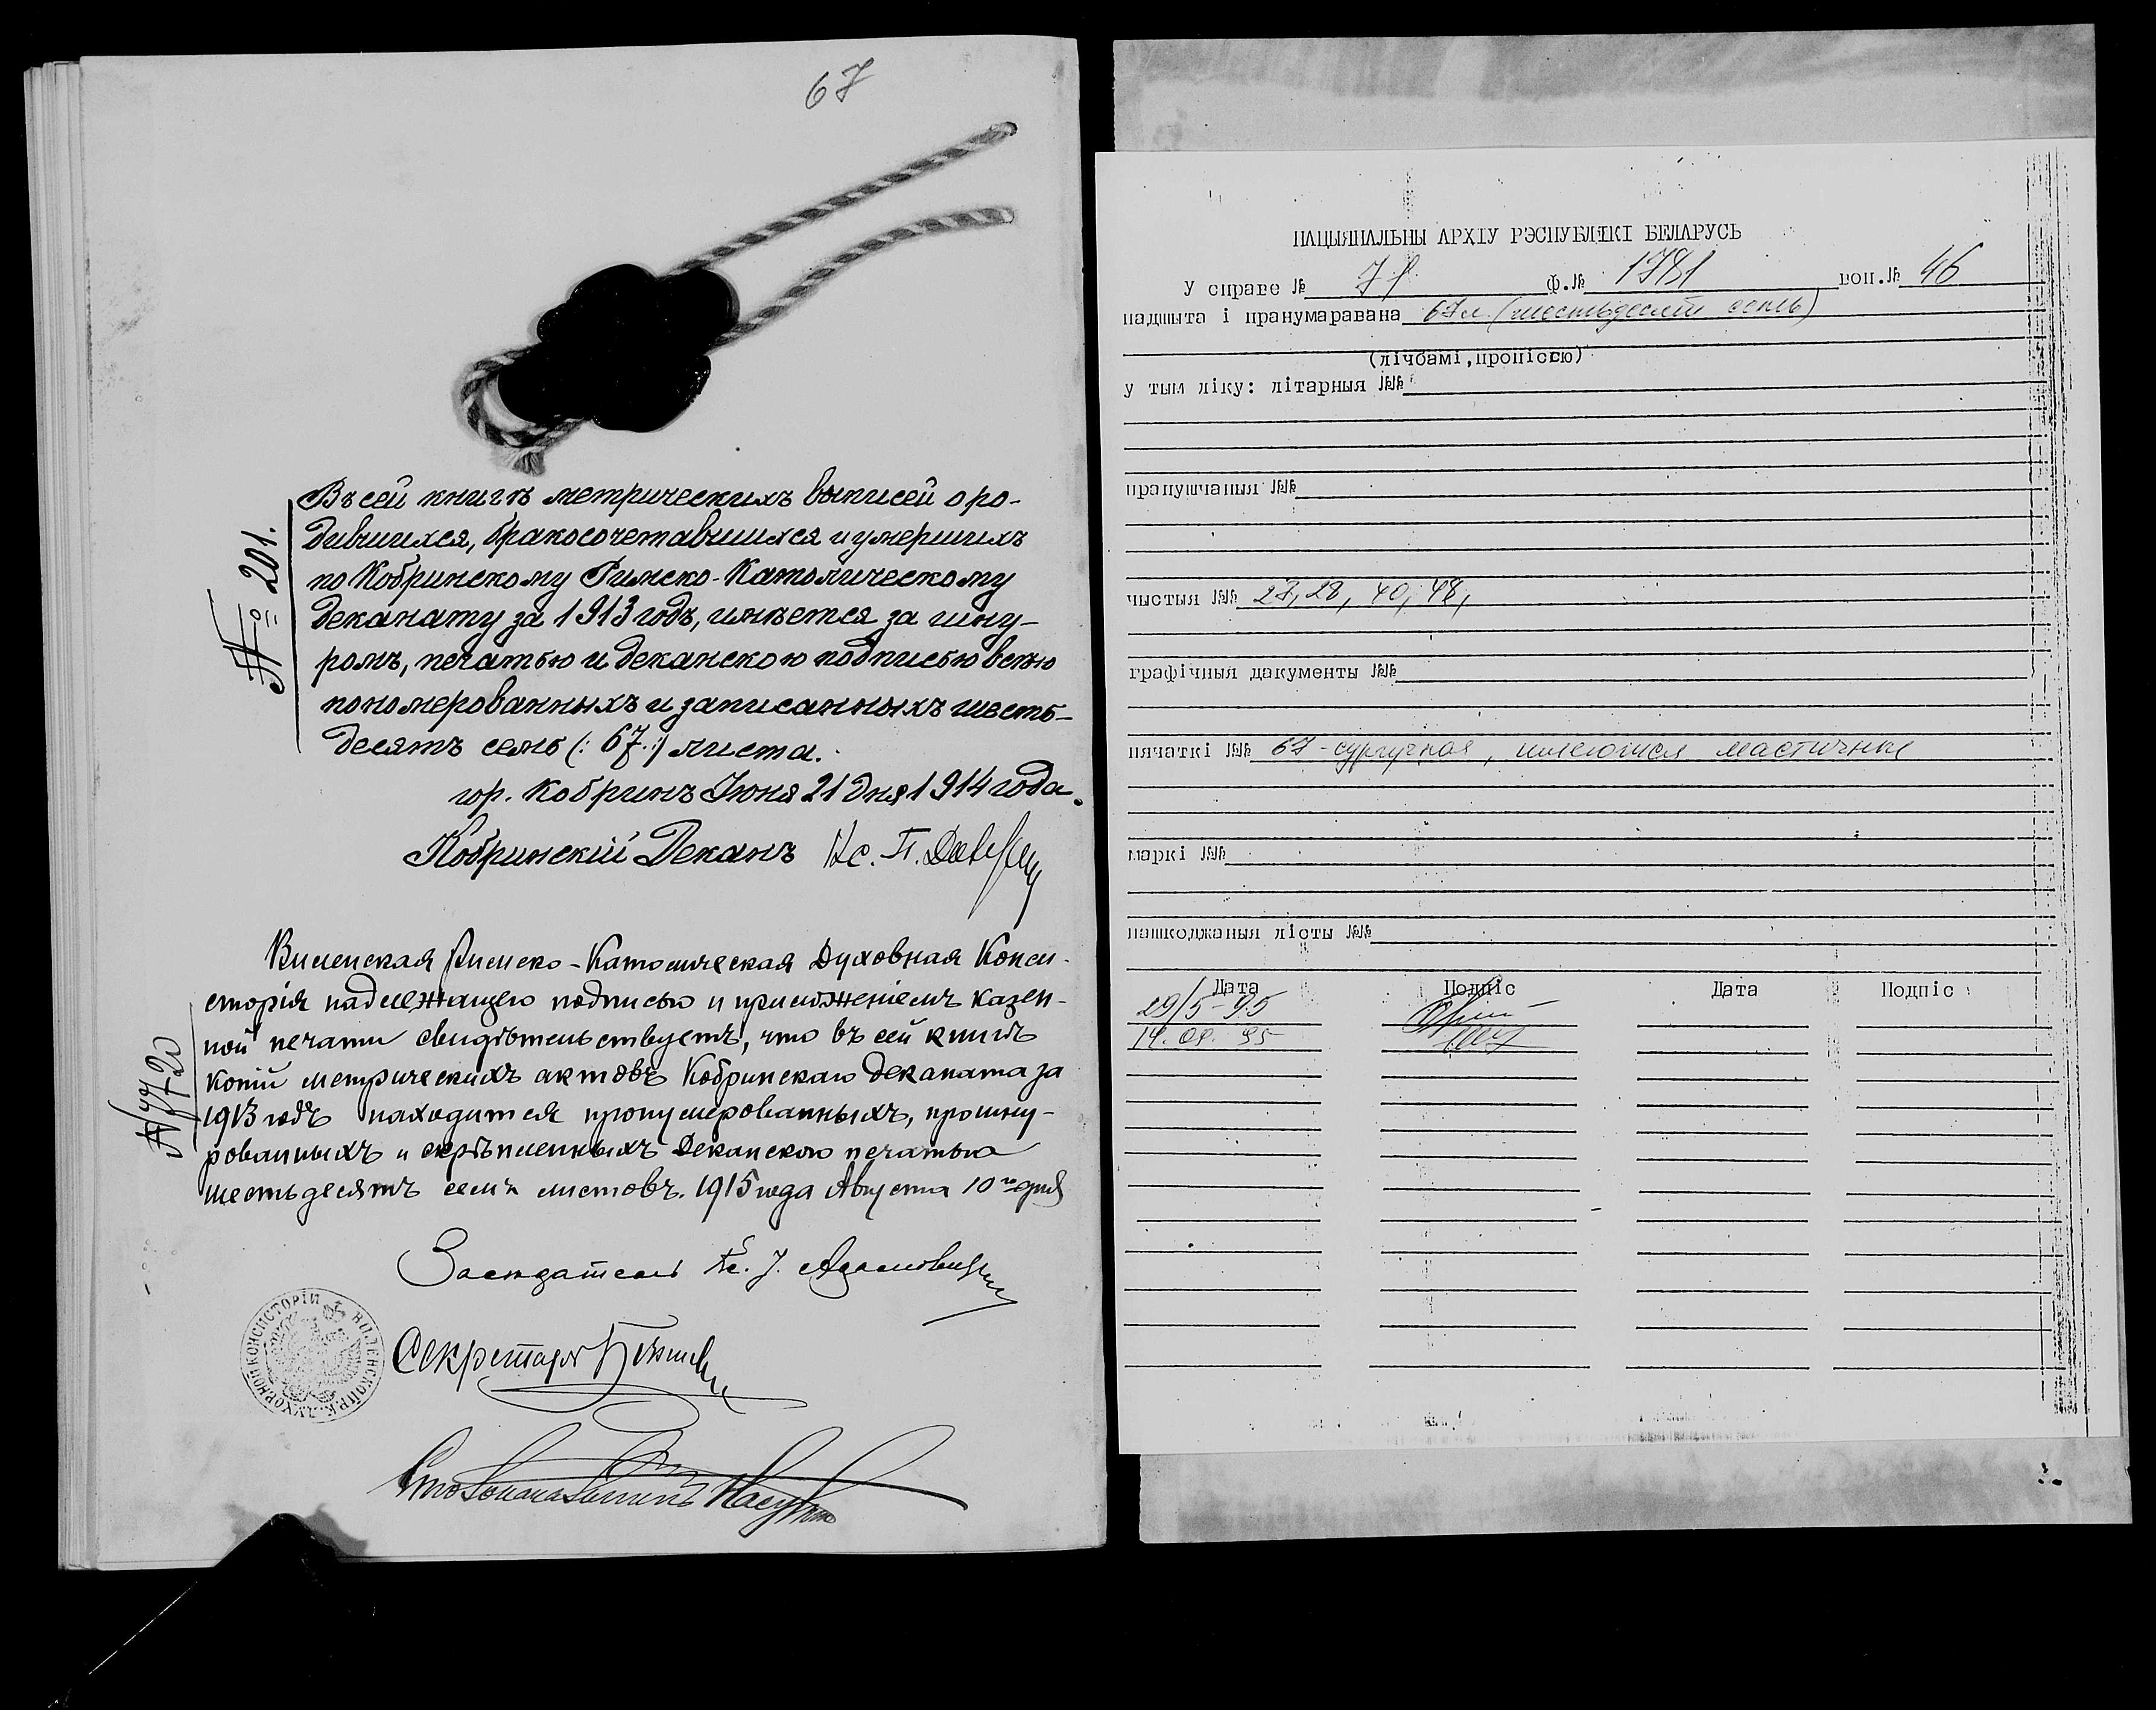 67
№ 201.
Въ сей книгѣ метрическихъ выписей о ро-
дившихся, бракосочетавшихся и умершихъ
по Кобринскому Римско-Католическому
Деканату за 1913 годъ, имѣется за шну-
ромъ, печатью и деканскою подписью всѣю
пономерованныхъ и записанныхъ шесть-
десятъ семь (: 67 :) листа.
гор. Кобринъ Іюня 21 дня 1914 года.
Кобринскій Деканъ Кс. П.
Виленская Римско-Католическая Духовная Конси-
сторія надлежащею подписью и приложеніемъ казен-
ной печати свидѣтельствуетъ, что въ сей книгѣ
копій метрическихъ актовъ Кобринскаго деканата за
1913 годъ находится пронумерованныхъ, прошну-
рованныхъ и скрѣпленныхъ Деканскою печатью
шестьдесятъ семь листовъ. 1915 года Августа 10го дня
№ 7720
Засѣдатель Кс. І. Адамовичъ
Секретарь
Столоначальникъ
ВИЛЕНСКОЙ Р.К. ДУХОВНОЙ КОНСИСТОРІИ
НАЦЫЯНАЛЬНЫ АРХІУ РЭСПУБЛІКІ БЕЛАРУСЬ
У справе № ф.№ 1781 воп.№ 46
падшыта і пранумаравана 67 л. (шестьдесят семь)
(лічбамі, пропіссю)
у тым ліку: літарныя №№
прапушчаныя №№
чыстыя №№ 27, 28, 40, 48,
графічныя дакументы №№
пячаткі №№ 67 - сургучная, имеются мастичные
маркі №№
пашкоджаныя лісты №№
Дата Подпіс Дата Подпіс
29/5-95
14. 09. 95